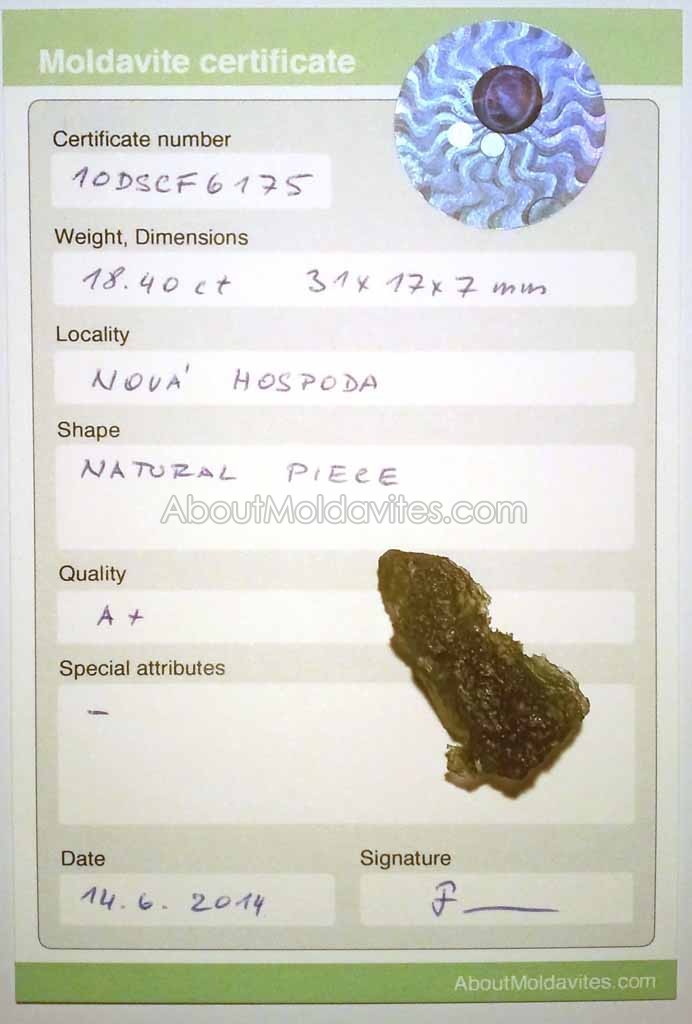 Moldavite certificate
Certificate number
10DSCF6175
Weight, Dimensions
18.40 ct 31x17x7 mm
Locality
NOVÁ HOSPODA
Shape
NATURAL PIECE
AboutMoldavites.com
Quality
A+
Special attributes
–
Date
Signature
14.6.2014
AboutMoldavites.com